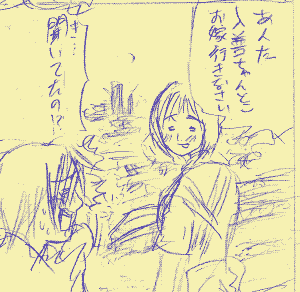 あんた
入善ちゃんとこ
お嫁行きなさい
き…
聞いてたの!?